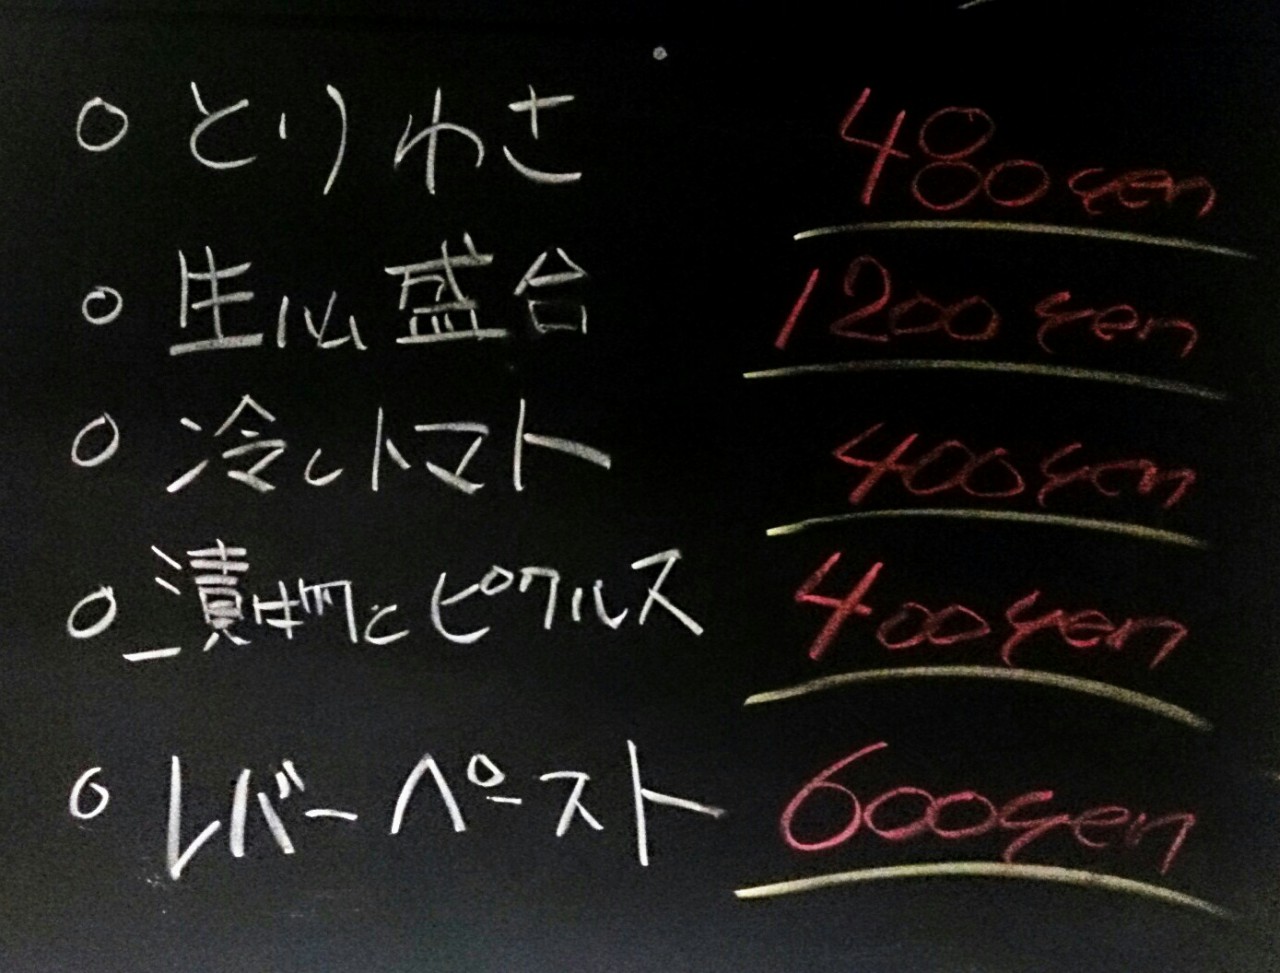 ○ とりわさ 480yen
○ 生ハム盛合 1200yen
○ 冷しトマト 400yen
○ 漬物とピクルス 400yen
○ レバーペースト 600yen